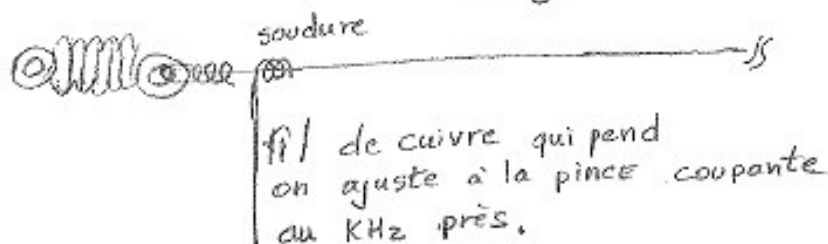 soudure
fil de cuivre qui pend
on ajuste à la pince coupante
au KHz près.